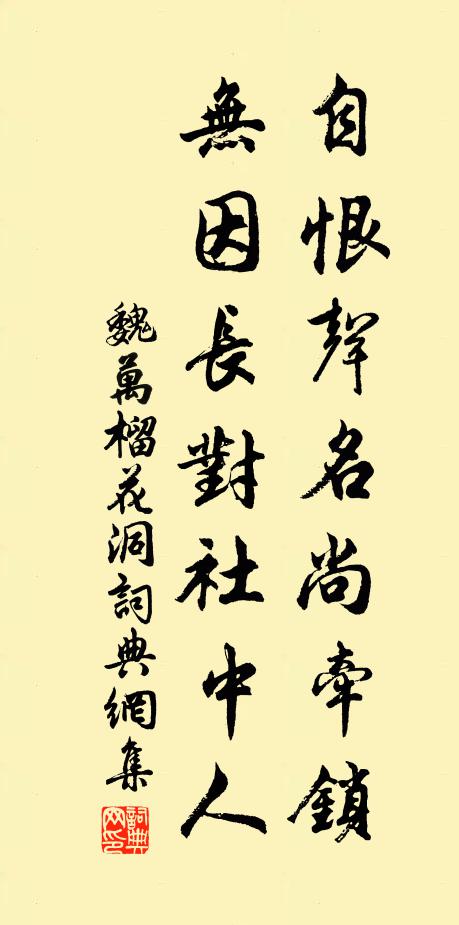 自恨聲名尚牽鎖
無因長對社中人
魏萬榴花洞詞典網集
詞典網印